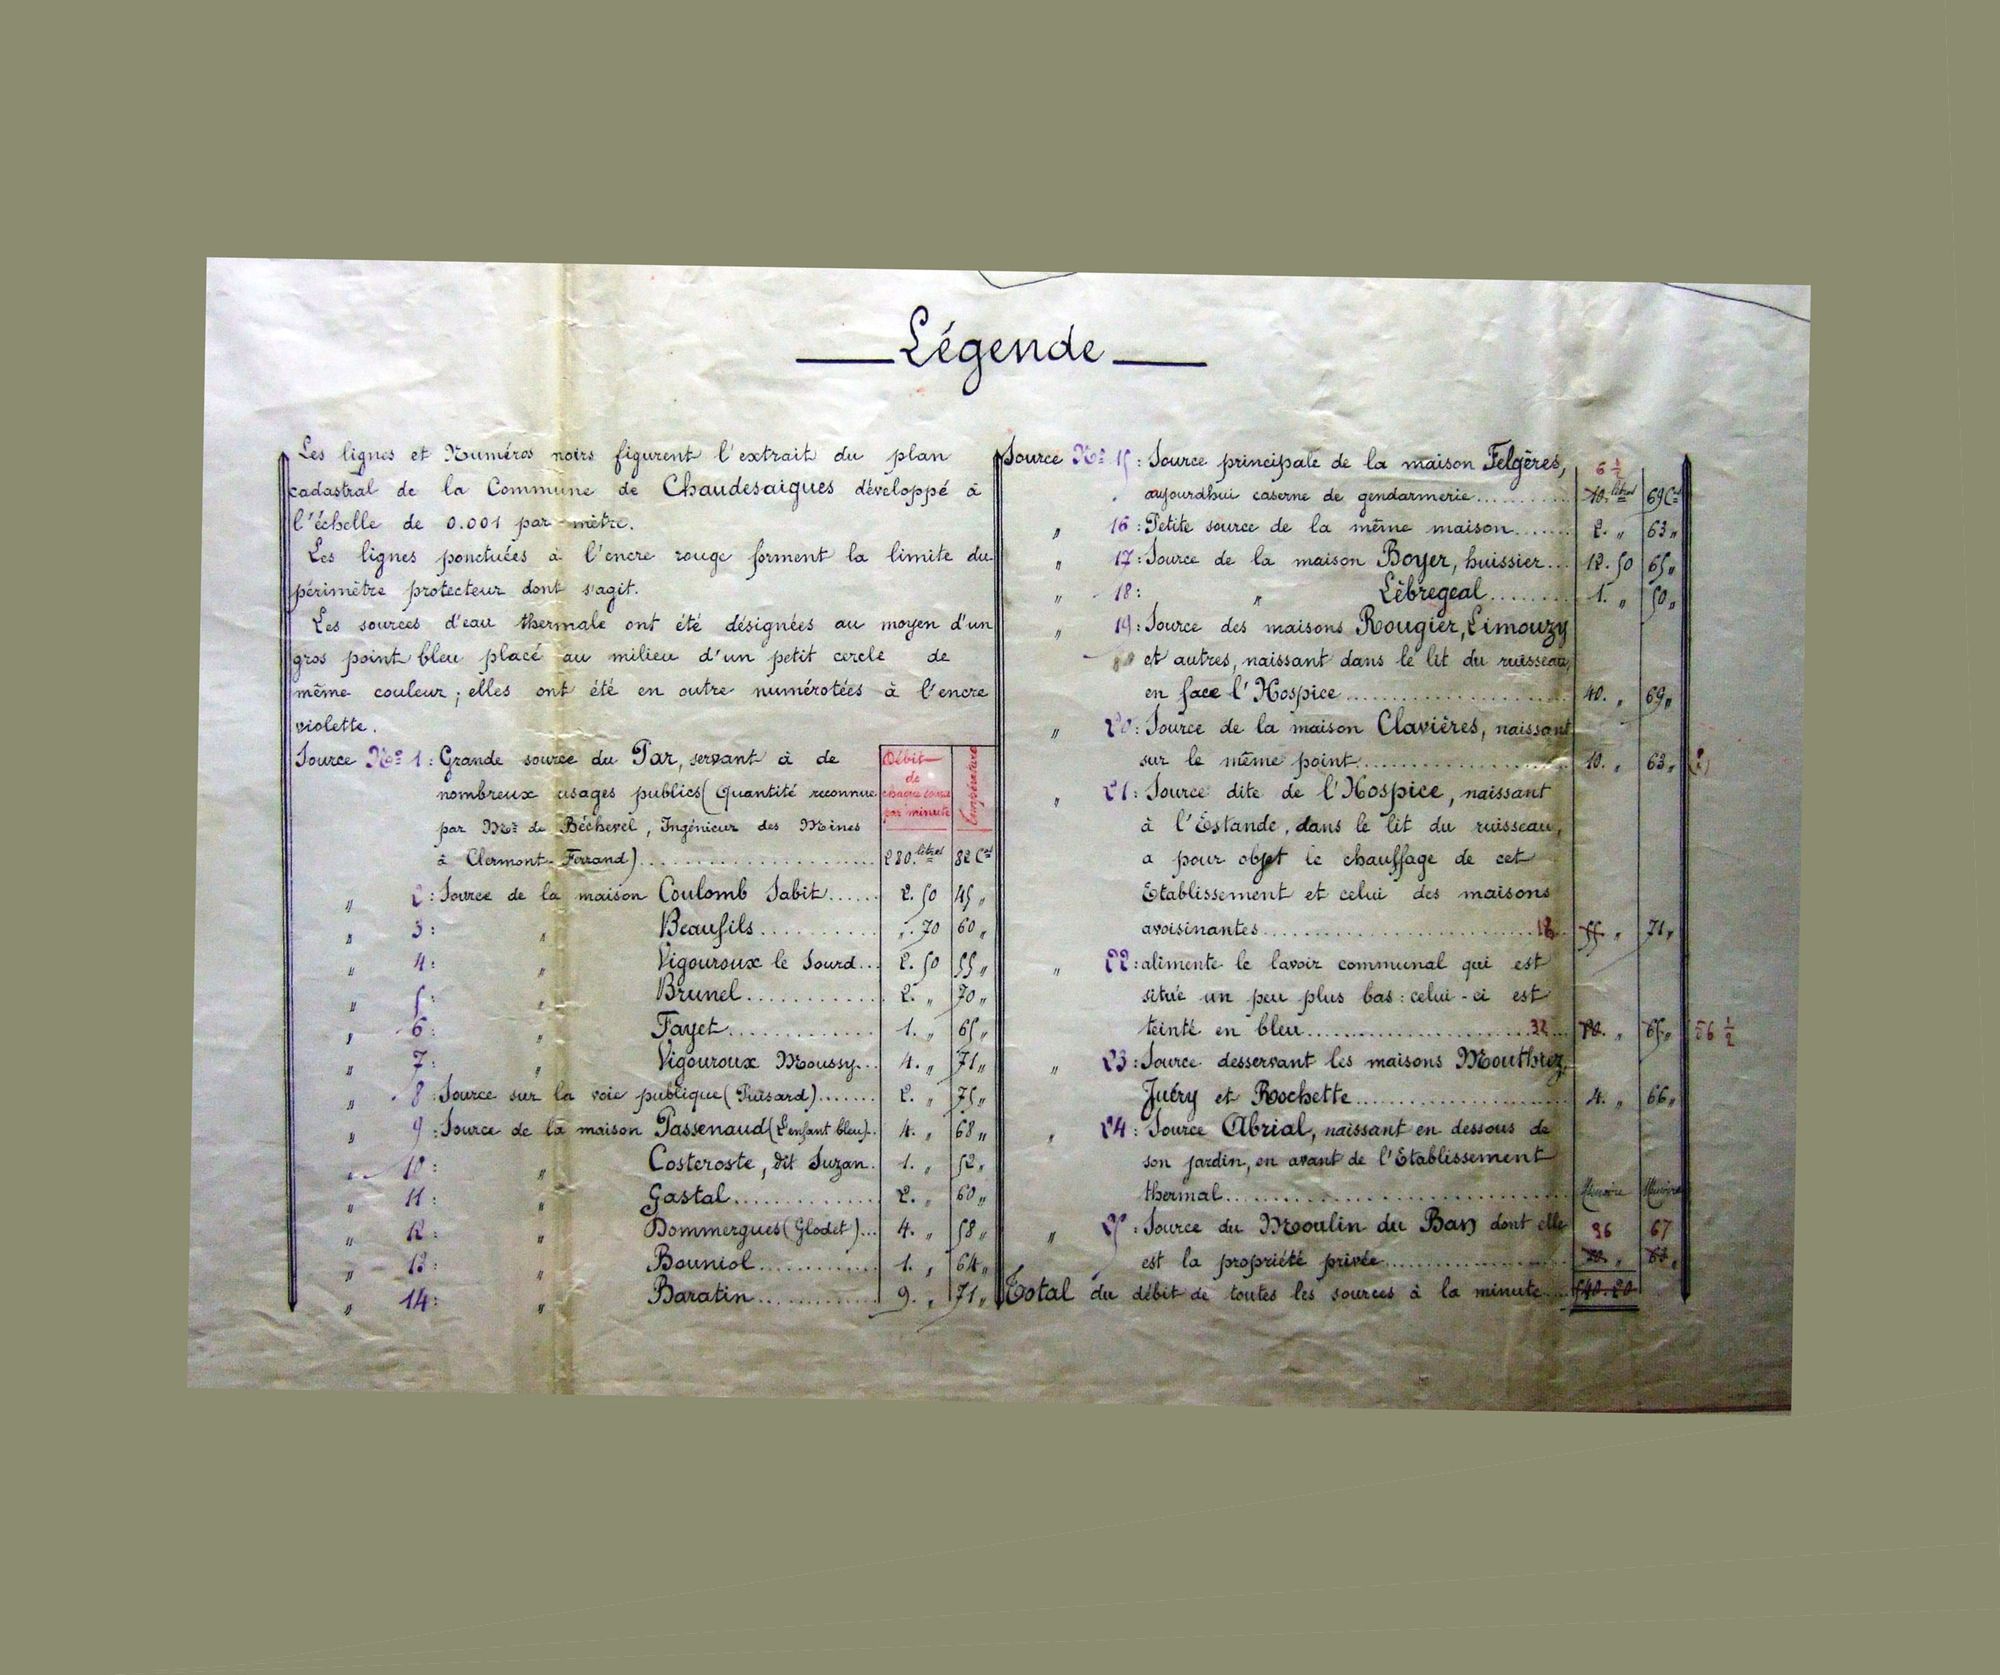 Légende
Les lignes et Numéros noirs figurent l'extrait du plan
cadastral de la Commune de Chaudesaigues développé à
l'échelle de 0.001 par mètre.
Les lignes ponctuées à l'encre rouge forment la limite du
périmètre protecteur dont s'agit.
Les sources d'eau thermale ont été désignées au moyen d'un
gros point bleu placé au milieu d'un petit cercle de
même couleur; elles ont été en outre numérotées à l'encre
violette.
Débit de chaque source par minute Température
Source No 1: Grande source du Par, servant à de
nombreux usages publics (Quantité reconnue
par Mr de Béchevel, Ingénieur des Mines
à Clermont-Ferrand)... 280. litres 82 Cent
" 2: Source de la maison Coulomb Sabit... 2.50 45 "
" 3: " Beaufils... ". 70 60 "
" 4: " Vigouroux le Sourd... 2.50 55 "
" 5: " Brunel... 2. " 70 "
" 6: " Fayet... 1. " 65 "
" 7: " Vigouroux Moussy... 4. " 71 "
" 8: Source sur la voie publique (Puisard)... 2. " 75 "
" 9: Source de la maison Passenaud (L'enfant bleu)... 4. " 68 "
" 10: " Costeroste, dit Suzan. 1. " 52 "
" 11: " Gastal... 2. " 60 "
" 12: " Dommergues (Glodet)... 4. " 58 "
" 13: " Bouniol... 1. " 64 "
" 14: " Baratin... 9. " 71 "
Source No 15: Source principale de la maison Felgères, 6 1/2
aujourdhui caserne de gendarmerie... 10. litres 69 Cent
" 16: Petite source de la même maison... 2. " 63 "
" 17: Source de la maison Boyer, huissier... 12. 50 65 "
" 18: " Lèbregeal... 1. " 50 "
" 19: Source des maisons Rougier, Limouzy
et autres, naissant dans le lit du ruisseau,
en face l'Hospice... 40. " 69 "
" 20: Source de la maison Clavières, naissant
sur le même point... 10. " 63 "
" 21: Source dite de l'Hospice, naissant
à l'Estande, dans le lit du ruisseau,
a pour objet le chauffage de cet
Etablissement et celui des maisons
avoisinantes... 18 55. " 71 "
" 22: alimente le lavoir communal qui est
située un peu plus bas: celui-ci est
teinté en bleu... 32 " 65 " 56 1/2
" 23: Source desservant les maisons Mouthiez,
Juéry et Rochette... 4. " 66 "
" 24: Source Abrial, naissant en dessous de
son jardin, en avant de l'Etablissement
thermal... Mémoire Mémoire
" 25: Source du Moulin du Ban dont elle 96 67
est la propriété privée...
Total du débit de toutes les sources à la minute... 540.20